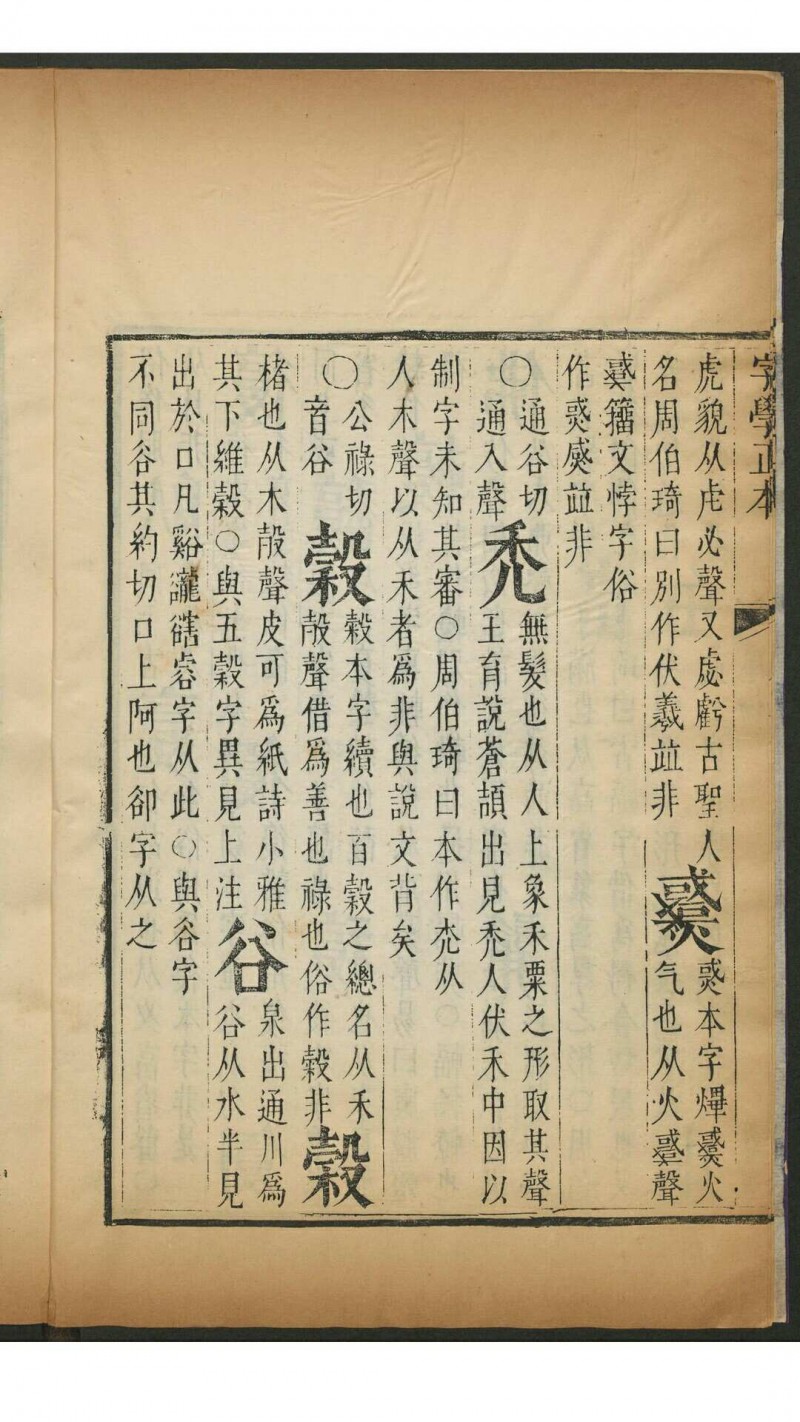 字學正本
虎貌从虍必聲又虙虧古聖人
名周伯琦曰別作伏羲竝非
𤑹本字熚㷶火
气也从火𢨋聲
𢨋籀文悖字俗
作㷶㷶竝非
○通谷切
通入聲
禿
無髮也从人上象禾粟之形取其聲
王育說蒼頡出見禿人伏禾中因以
制字未知其審○周伯琦曰本作禿从
人木聲以从禾者為非與說文背矣
○公祿切
音谷
穀
穀本字續也百穀之總名从禾
㱿聲借爲善也祿也俗作穀非
榖
楮也从木㱿聲皮可爲紙詩小雅
其下維榖○與五穀字異見上注
谷
泉出通川爲
谷从水半見
出於口凡谿豅𧯆容字从此○與谷字
不同谷其約切口上阿也卻字从之